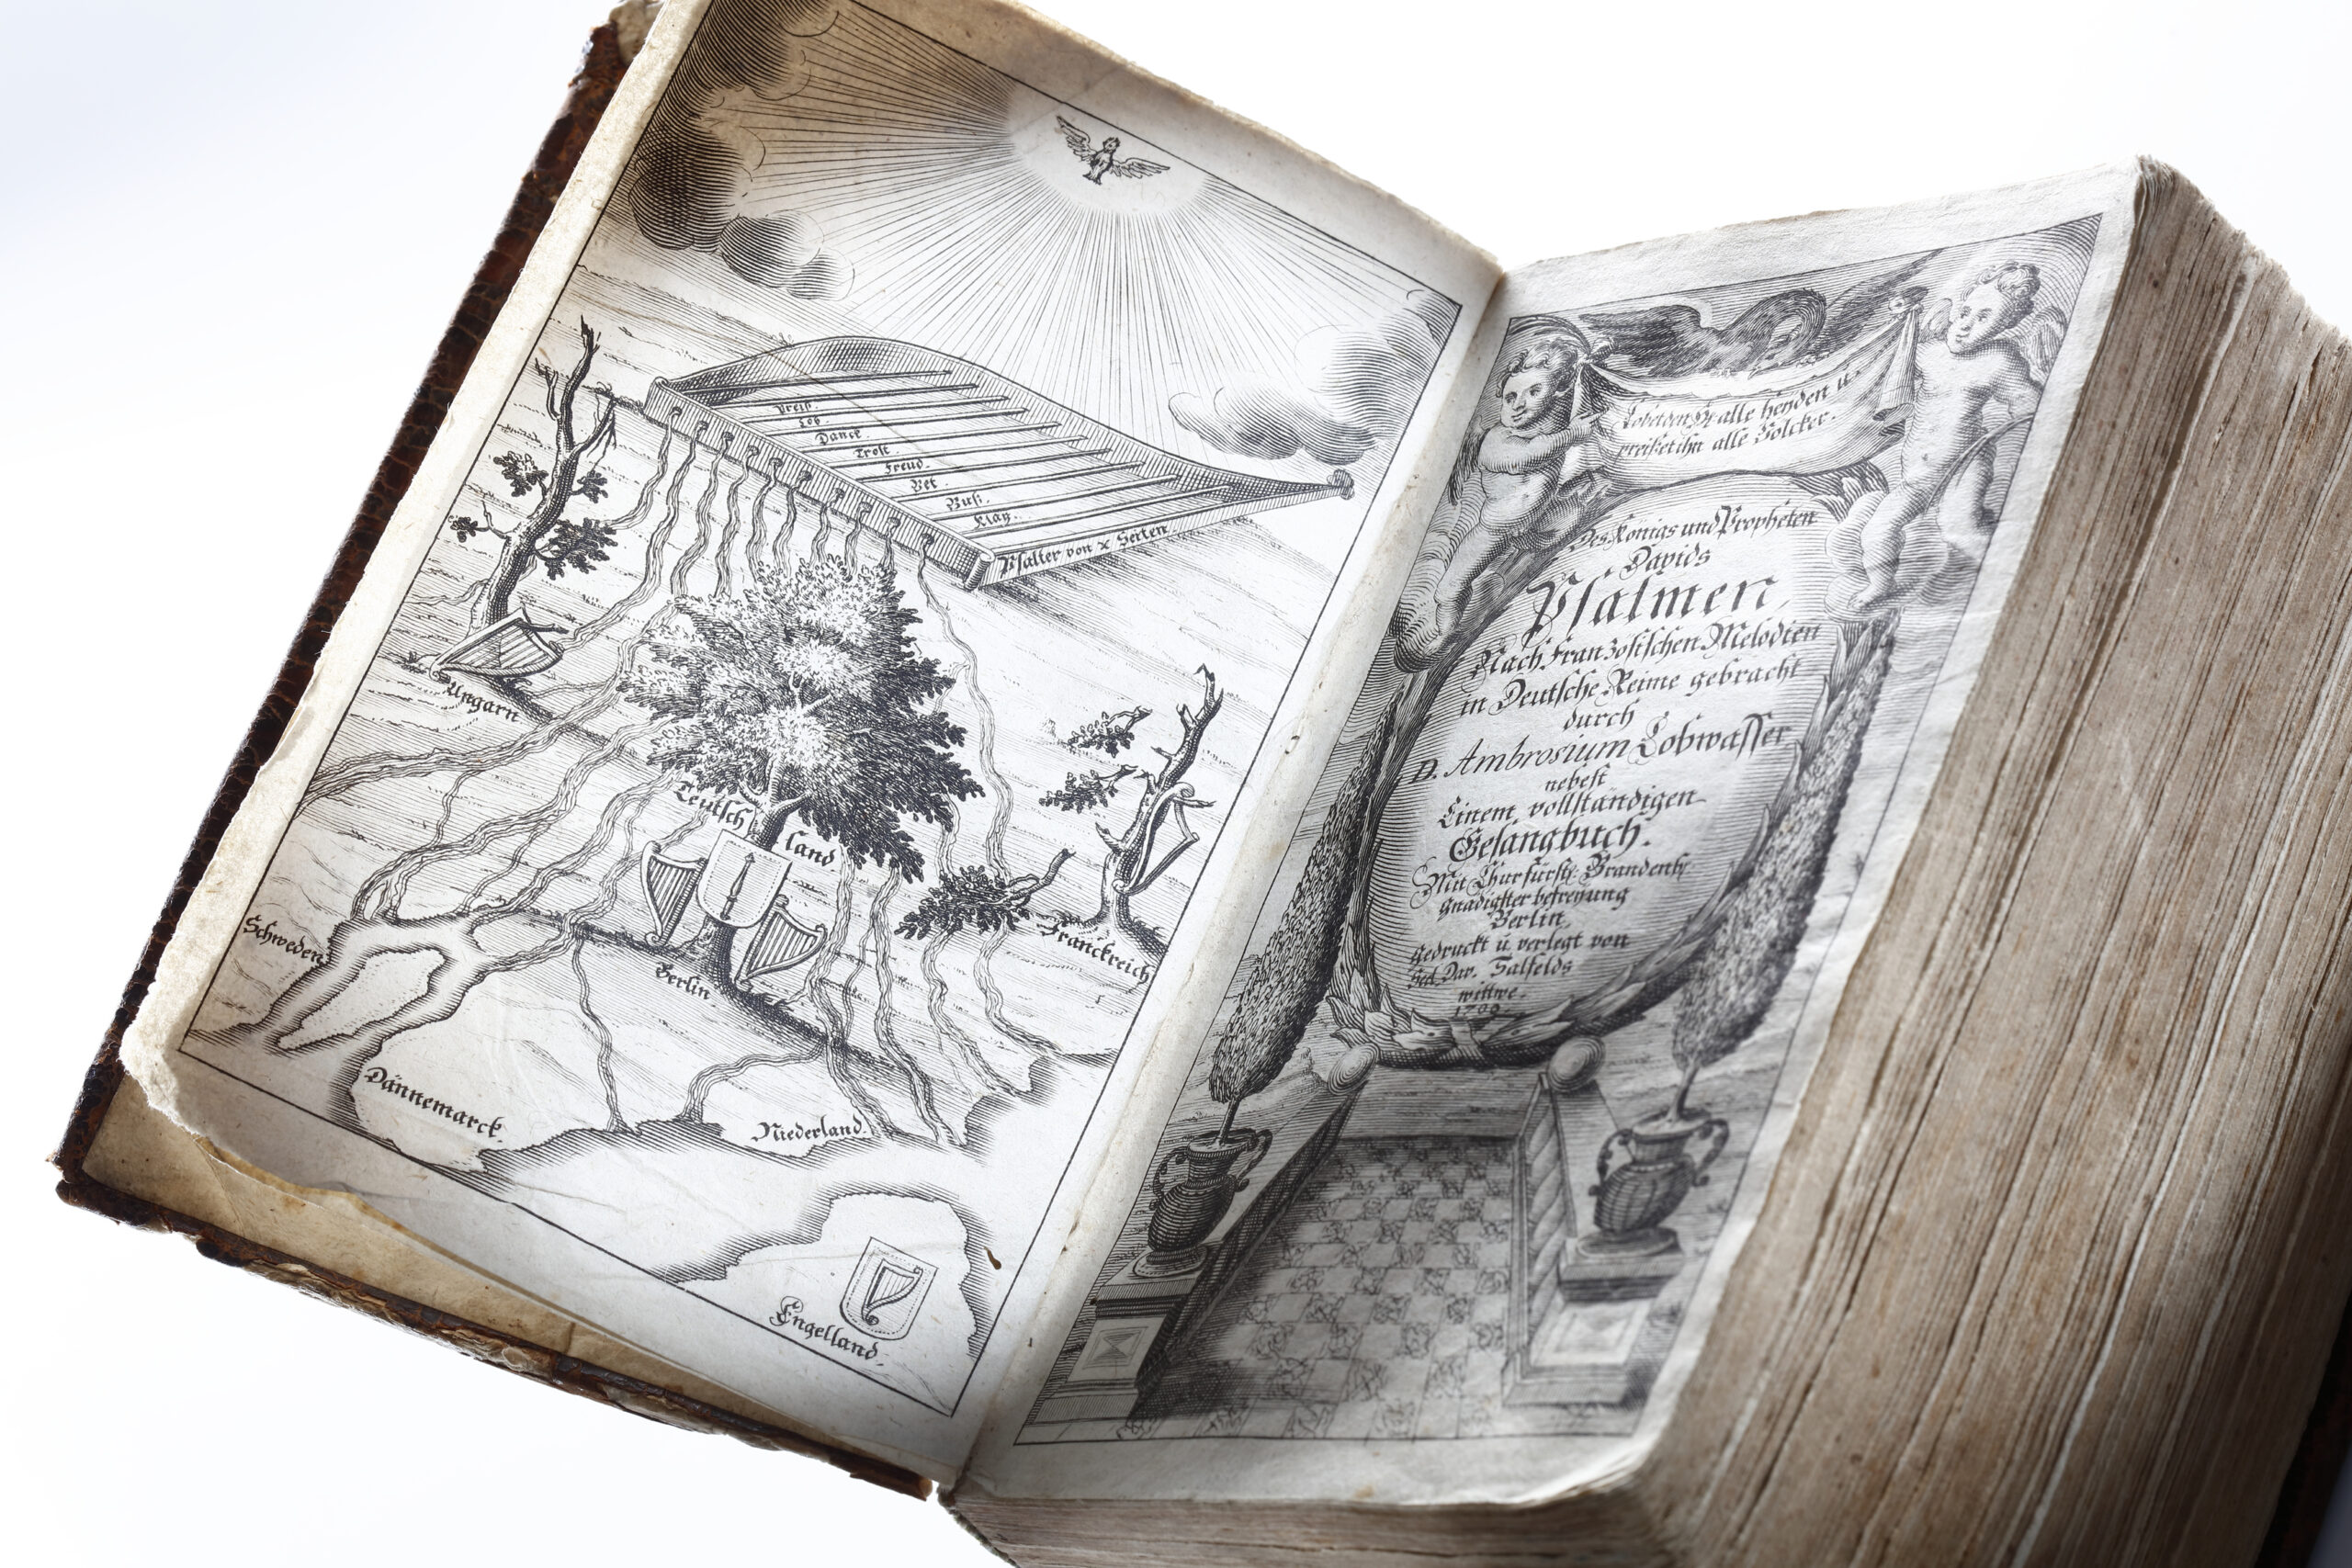 Preiß.
Lob.
Danck.
Trost.
Freud.
Bet.
Buß.
Klag.
Psalter von x Seiten
Ungarn
Teutsch
land
Schweden
Berlin
Franckreich
Dännemarck.
Niederland.
Engelland.
Lobet den HE alle heyden u.
preiset ihn alle Völcker.
Des Königs und Propheten
Davids
Psalmen,
Nach Französischen Melodien
in Deutsche Reime gebracht
durch
D. Ambrosium Lobwasser
nebest
Einem vollständigen
Gesangbuch.
Mit Churfürstl. Brandenb.
gnädigster befreyung
Berlin,
gedruckt u. verlegt von
Sel. Dav. Salfelds
wittwe.